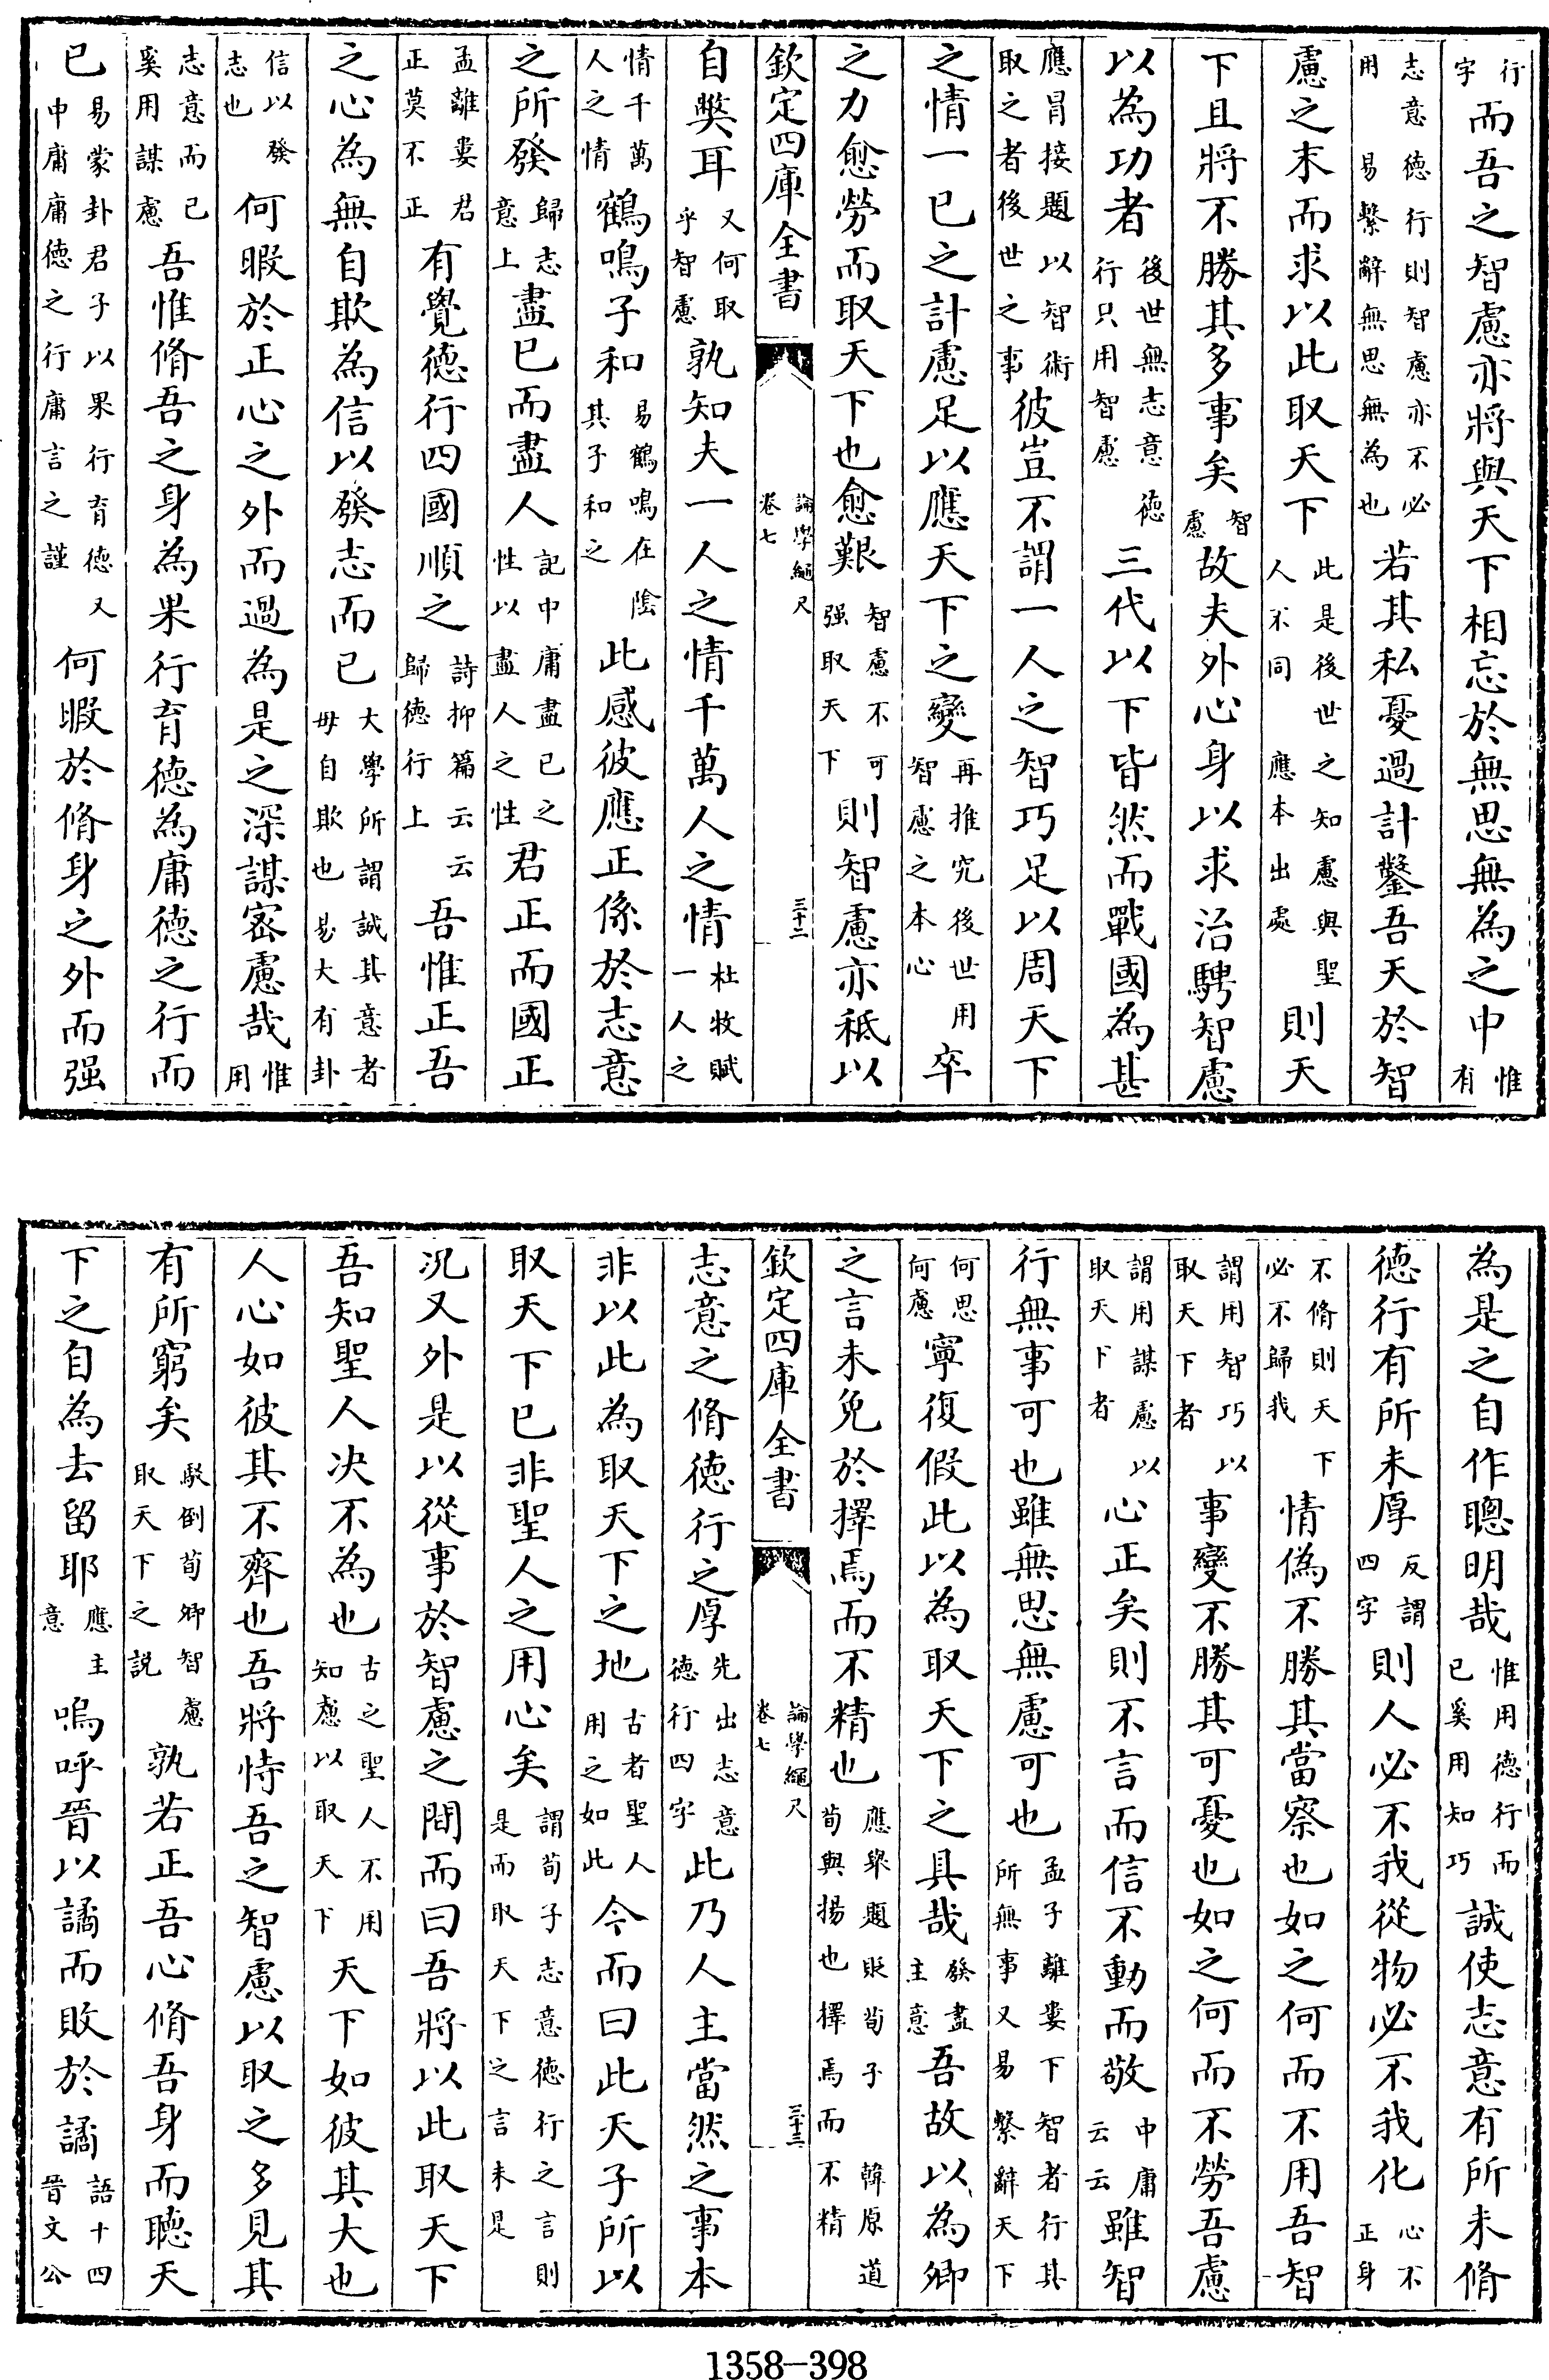 行字而吾之智慮亦將與天下相忘於無思無為之中惟有
志意德行則智慮亦不必用易繫辭無思無為也若其私憂過計鑿吾天於智
慮之末而求以此取天下此是後世之知慮與聖人不同應本出處則天
下且將不勝其多事矣智慮故夫外心身以求治騁智慮
以為功者後世無志意德行只用智慮三代以下皆然而戰國為甚
應冒接題以智術取之者後世之事彼豈不謂一人之智巧足以周天下
之情一已之計慮足以應天下之變再推究後世用智慮之本心卒
之力愈勞而取天下也愈艱智慮不可强取天下則智慮亦秪以
欽定四庫全書 論學繩尺卷七 三十二
自弊耳又何取乎智慮孰知夫一人之情千萬人之情杜牧賦一人之
情千萬人之情鶴鳴子和易鶴鳴在陰其子和之此感彼應正係於志意
之所發歸志意上盡已而盡人記中庸盡已之性以盡人之性君正而國正
孟離婁君正莫不正有覺德行四國順之詩抑篇云云歸德行上吾惟正吾
之心為無自欺為信以發志而已大學所謂誠其意者毋自欺也易大有卦
信以發志也何暇於正心之外而過為是之深謀宻慮哉惟用
志意而已奚用謀慮吾惟脩吾之身為果行育德為庸德之行而
已易蒙卦君子以果行育德又中庸庸德之行庸言之謹何暇於脩身之外而强
為是之自作聰明哉惟用德行而已奚用知巧誠使志意有所未脩
德行有所未厚反謂四字則人必不我從物必不我化心不正身
不脩則天下必不歸我情偽不勝其當察也如之何而不用吾智
謂用智巧以取天下者事變不勝其可憂也如之何而不勞吾慮
謂用謀慮以取天下者心正矣則不言而信不動而敬中庸云云雖智
行無事可也雖無思無慮可也孟子離婁下智者行其所無事又易繫辭天下
何思何慮寧復假此以為取天下之具哉發盡主意吾故以為卿
之言未免於擇焉而不精也應舉題貶荀子韓原道荀與揚也擇焉而不精
欽定四庫全書 論學繩尺卷七 三十三
志意之脩德行之厚先出志意德行四字此乃人主當然之事本
非以此為取天下之地古者聖人用之如此今而曰此天子所以
取天下已非聖人之用心矣謂荀子志意德行之言則是而取天下之言未是
况又外是以從事於智慮之間而曰吾將以此取天下
吾知聖人决不為也古之聖人不用知慮以取天下天下如彼其大也
人心如彼其不齊也吾將恃吾之智慮以取之多見其
有所窮矣駁倒荀卿智慮取天下之説孰若正吾心脩吾身而聽天
下之自為去留耶應主意嗚呼晉以譎而敗於譎語十四晉文公
1358-398